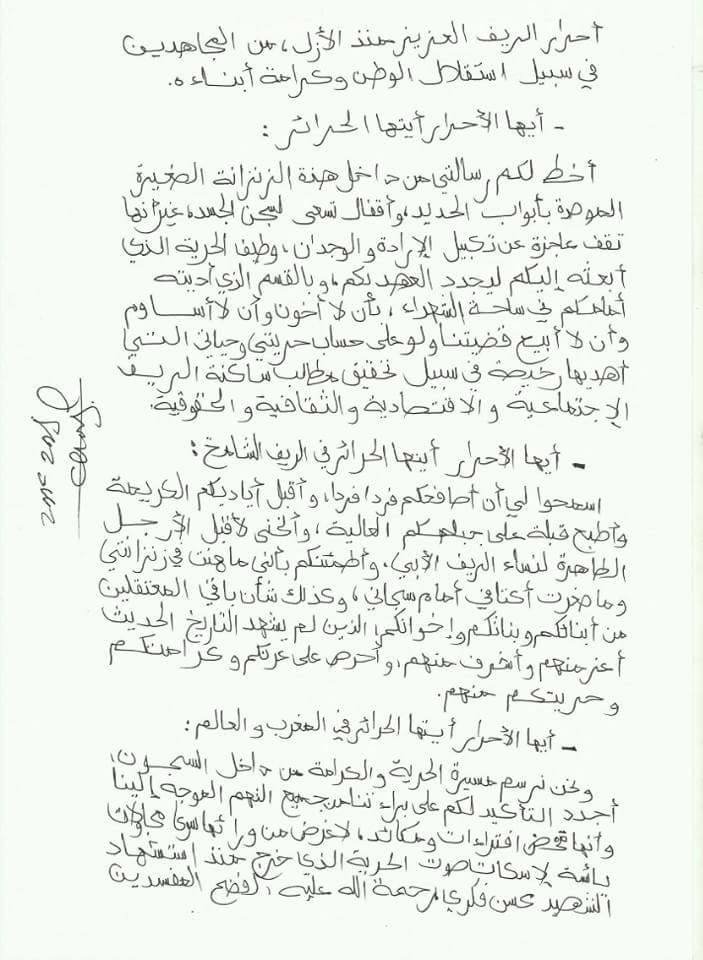 أحرار الريف العزيز منذ الأزل، من المجاهدين
في سبيل استقلال الوطن وكرامة أبناءه.
- أيها الأحرار أيتها الحرائر:
أخط لكم رسالتي من داخل هذه الزنزانة الصغيرة
الموصدة بأبواب الحديد، وأقفال تسعى لسجن الجسد، غير أنها
تقف عاجزة عن تكبيل الإرادة والوجدان، وطيف الحرية الذي
أبعثه إليكم ليجدد العهد بكم، وبالقسم الذي أديته
أمامكم في ساحة الشهداء، بأن لا أخون وأن لا أساوم
وأن لا أبيع قضيتنا ولو على حساب حريتي وحياتي التي
أهديها رخيصة في سبيل تحقيق مطالب ساكنة الريف
الإجتماعية والاقتصادية والثقافية والحقوقية.
- أيها الأحرار أيتها الحرائر في الريف الشامخ:
اسمحوا لي أن أصافحكم فردا فردا، وأقبل أياديكم الكريمة
وأطبع قبلة على جباهكم العالية، وأنحني لأقبل الأرجل
الطاهرة لنساء الريف الأبي، وأطمئنكم بأنني ما هنت في زنزانتي
وما خرت أكتافي أمام سجاني، وكذلك شأن باقي المعتقلين
من أبنائكم وبناتكم وإخوانكم، الذين لم يشهد التاريخ الحديث
أعز منهم وأشرف منهم، وأحرص على عزتكم وكرامتكم
وحريتكم منهم.
- أيها الأحرار أيتها الحرائر في المغرب والعالم:
ونحن نرسم مسيرة الحرية والكرامة من داخل السجون،
أجدد التأكيد لكم على براءتنا من جميع التهم الموجهة إلينا
وأنها محض افتراءات ومكائد، لا غرض من ورائها سوى محاولات
يائسة لإسكات صوت الحرية الذي خرج منذ استشهاد
الشهيد محسن فكري رحمة الله عليه، لفضح المفسدين